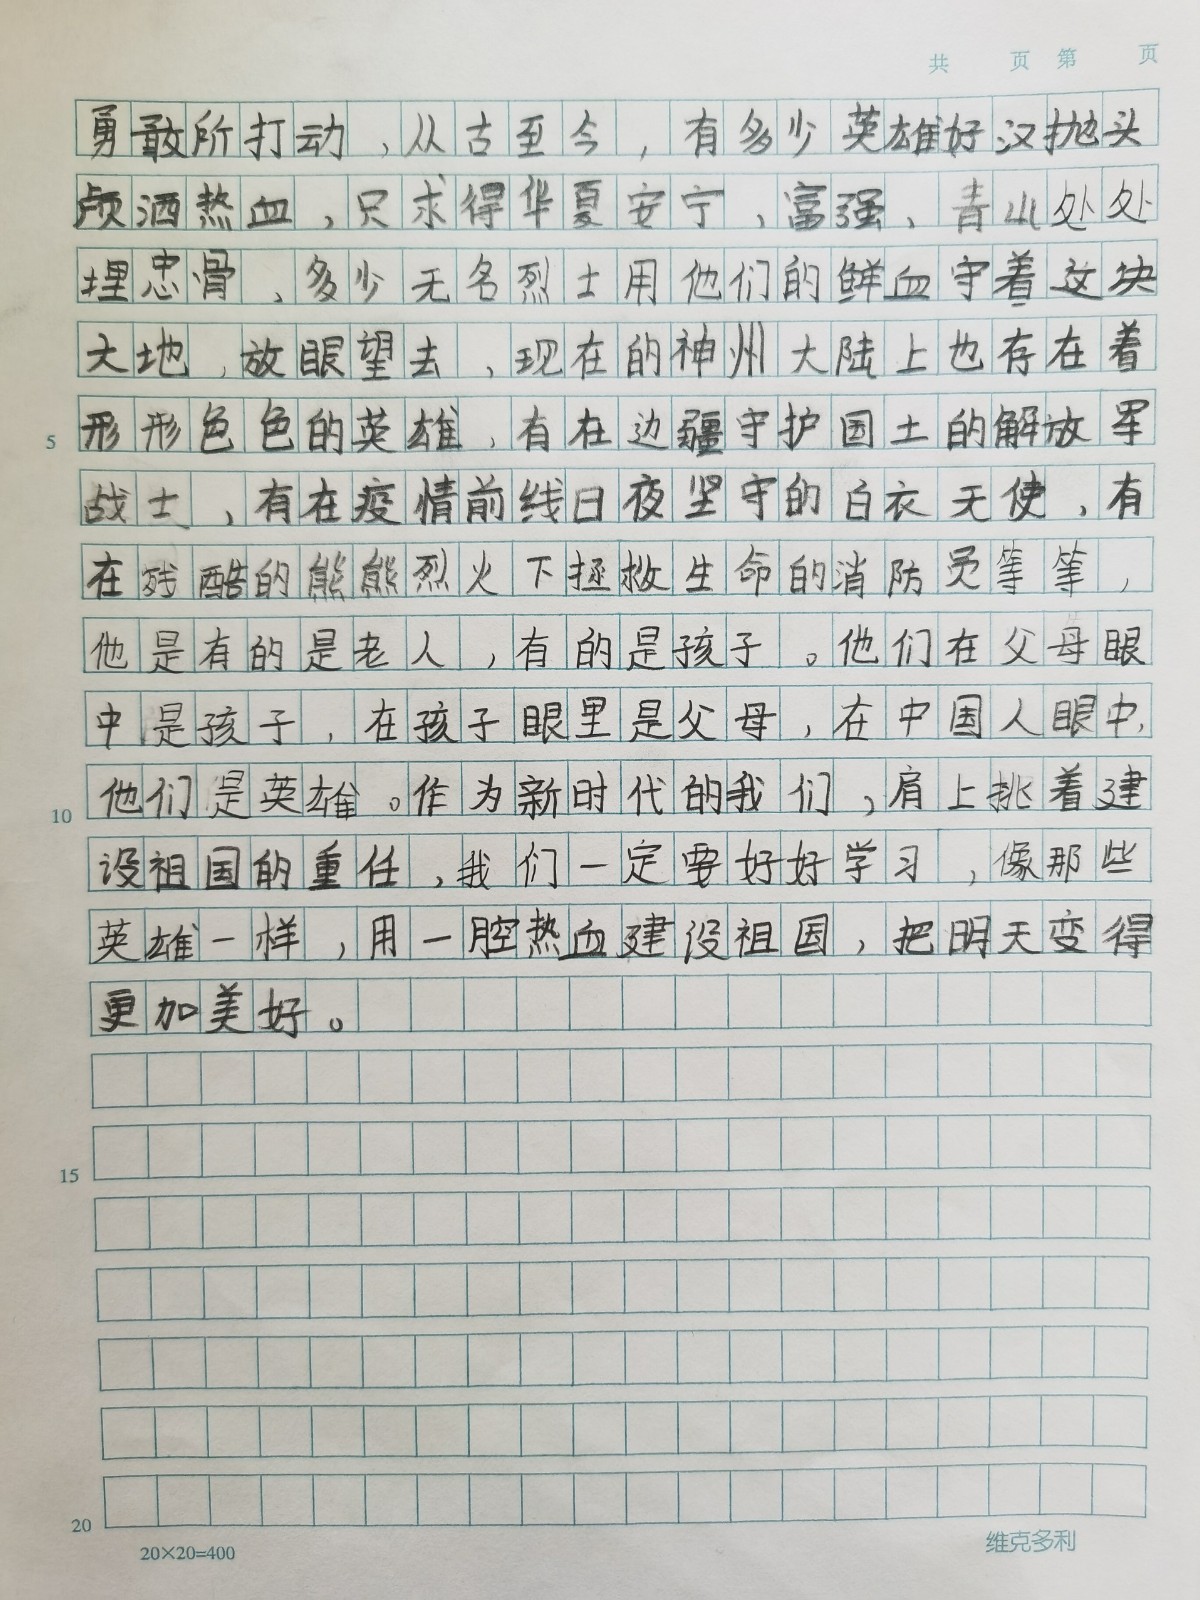 共 页 第 页
勇敢所打动,从古至今,有多少英雄好汉抛头
颅洒热血,只求得华夏安宁,富强、青山处处
埋忠骨、多少无名烈士用他们的鲜血守着这块
大地,放眼望去,现在的神州大陆上也存在着
5 形形色色的英雄,有在边疆守护国土的解放军
战士,有在疫情前线日夜坚守的白衣天使,有
在残酷的熊熊烈火下拯救生命的消防员等等,
他是有的是老人,有的是孩子。他们在父母眼
中是孩子,在孩子眼里是父母,在中国人眼中,
10 他们是英雄。作为新时代的我们,肩上挑着建
设祖国的重任,我们一定要好好学习,像那些
英雄一样,用一腔热血建设祖国,把明天变得
更加美好。
15
20
20×20=400 维克多利